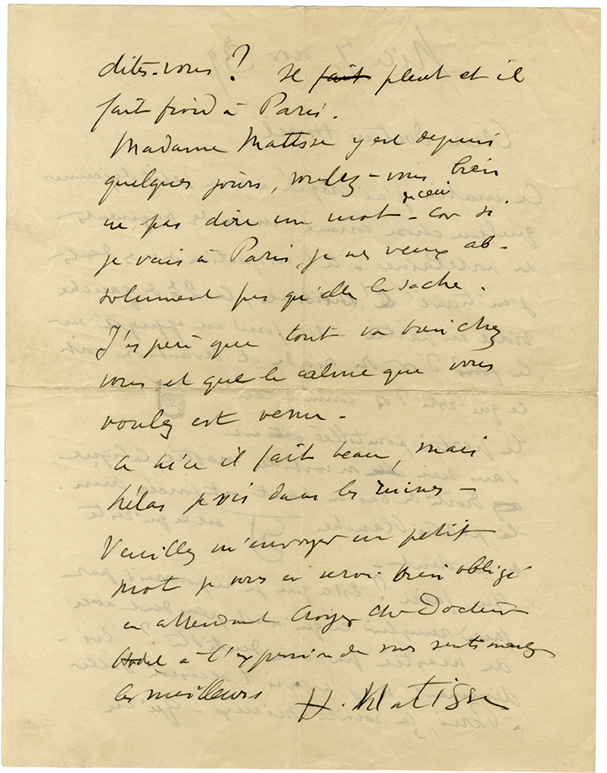 dites-vous? Il fait pleut et il
fait froid à Paris.
Madame Matisse y est depuis
quelques jours, voulez-vous bien
ne pas dire un mot de ceci - car si
je vais à Paris, je ne veux ab-
solument pas qu'elle le sache.
J'espère que tout va bien chez
vous et que le calme que vous
voulez est venu -
à Nice il fait beau, mais
hélas je vis dans les ruines -
Veuillez m'envoyer un petit
mot je vous en serai bien obligé
en attendant croyez cher Docteur
à l'expression de mes sentiments
les meilleurs H. Matisse